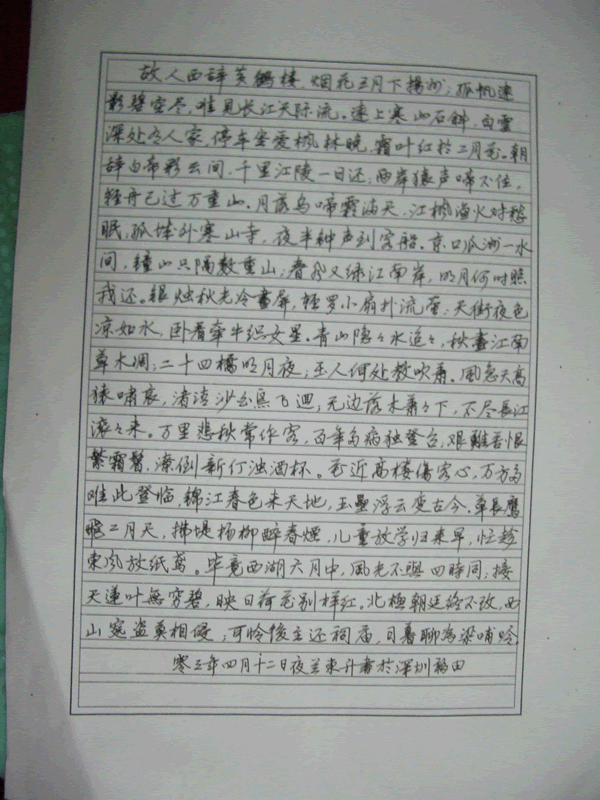 故人西辞黄鹤楼，烟花三月下揚州；孤帆遠
影碧空尽，唯见长江天际流。遠上寒山石斜，白雲
深处有人家，停车坐爱楓林晚，霜叶红於二月花。朝
辞白帝彩云间，千里江陵一日还；两岸猿声啼不住，
轻舟已过万重山。月落乌啼霜满天，江楓渔火对愁
眠，孤城外寒山寺，夜半钟声到客船。京口瓜洲一水
间，鐘山只隔数重山；春风又绿江南岸，明月何时照
我还。银烛秋光冷畫屏，轻罗小扇扑流萤；天街夜色
凉如水，卧看牵牛织女星。青山隐々水迢々，秋盡江南
草木凋；二十四橋明月夜，玉人何处教吹萧。風急天高
猿啸哀，渚清沙白鸟飞迴；无边落木萧々下，不尽長江
滚々来。万里悲秋常作客，百年多病独登台，艰難苦恨
繁霜鬓，潦倒新仃浊酒杯。花近高楼傷客心，万方多
难此登临，锦江春色来天地，玉壘浮云变古今。草長鷹
二月天，拂堤杨柳醉春煙，儿童放学归来早，忙趁
東风放纸鸢。毕竟西湖六月中，風光不與四時同；接
天莲叶無穷碧，映日荷花别样红。北極朝廷终不改，西
山寇盗莫相侵，可怜後主还祠庙，日暮聊为梁甫吟
零三年四月十二日夜兰東升書於深圳福田